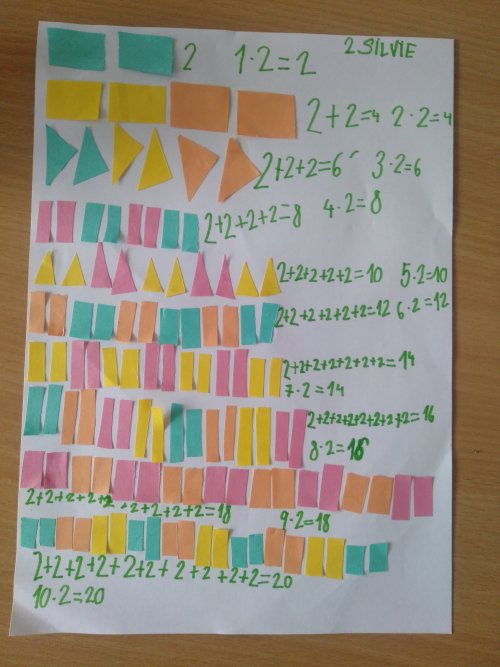 2 1·2=2 2 SILVIE
2+2=4 2·2=4
2+2+2=6 3·2=6
2+2+2+2=8 4·2=8
2+2+2+2+2=10 5·2=10
2+2+2+2+2+2=12 6·2=12
2+2+2+2+2+2+2=14
7·2=14
2+2+2+2+2+2+2+2=16
8·2=16
2+2+2+2+2+2+2+2+2=18 9·2=18
2+2+2+2+2+2+2+2+2+2=20
10·2=20